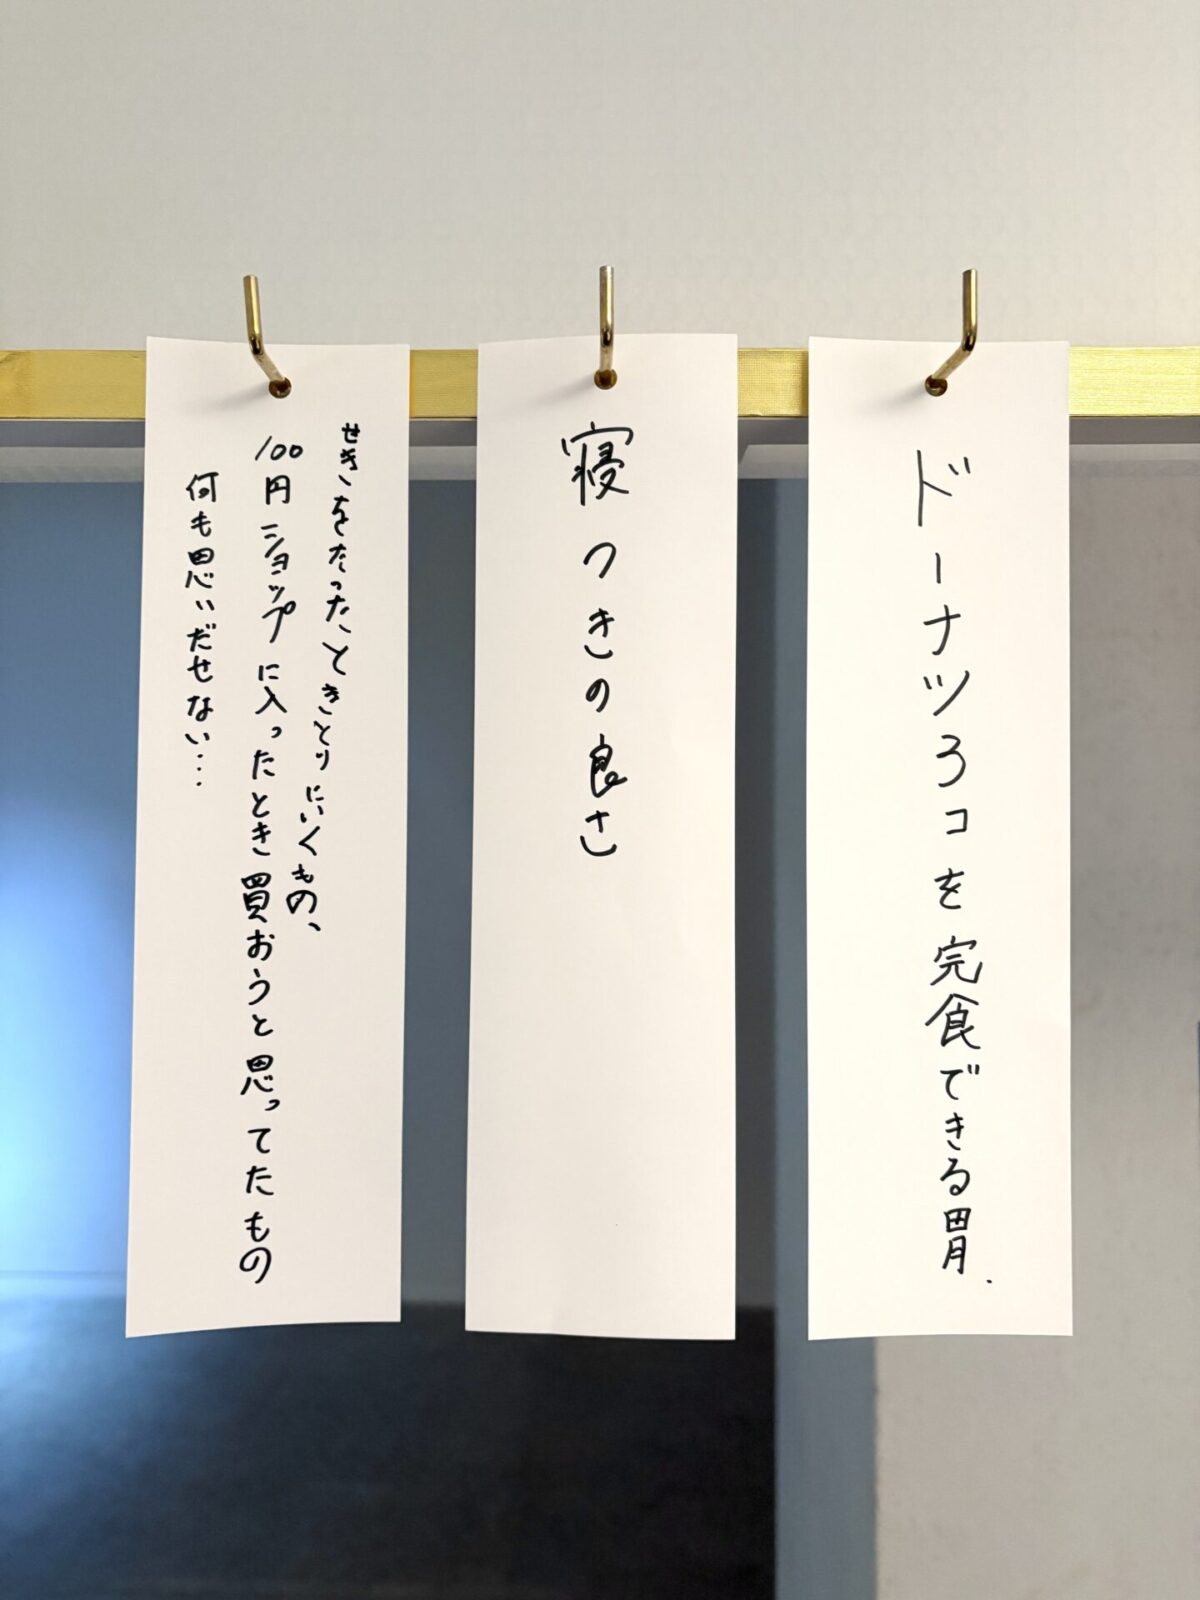 ドーナツ3コを完食できる胃.
寝つきの良さ
せきをたったときとりにいくもの、
100円ショップに入ったとき買おうと思ってたもの
何も思いだせない...